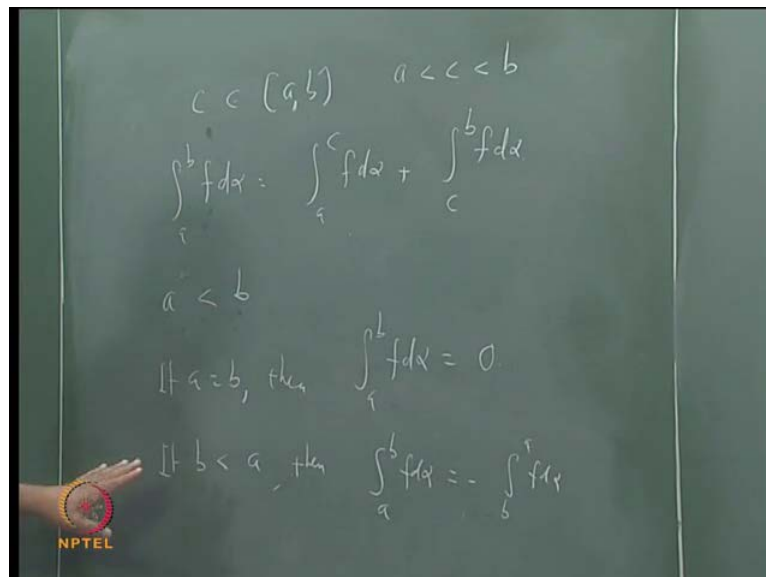 c ∈ (a,b)   a < c < b
∫_a^b f dα = ∫_a^c f dα + ∫_c^b f dα
a < b
If a = b, then ∫_a^b f dα = 0
If b < a, then ∫_a^b f dα = - ∫_b^a f dα
NPTEL